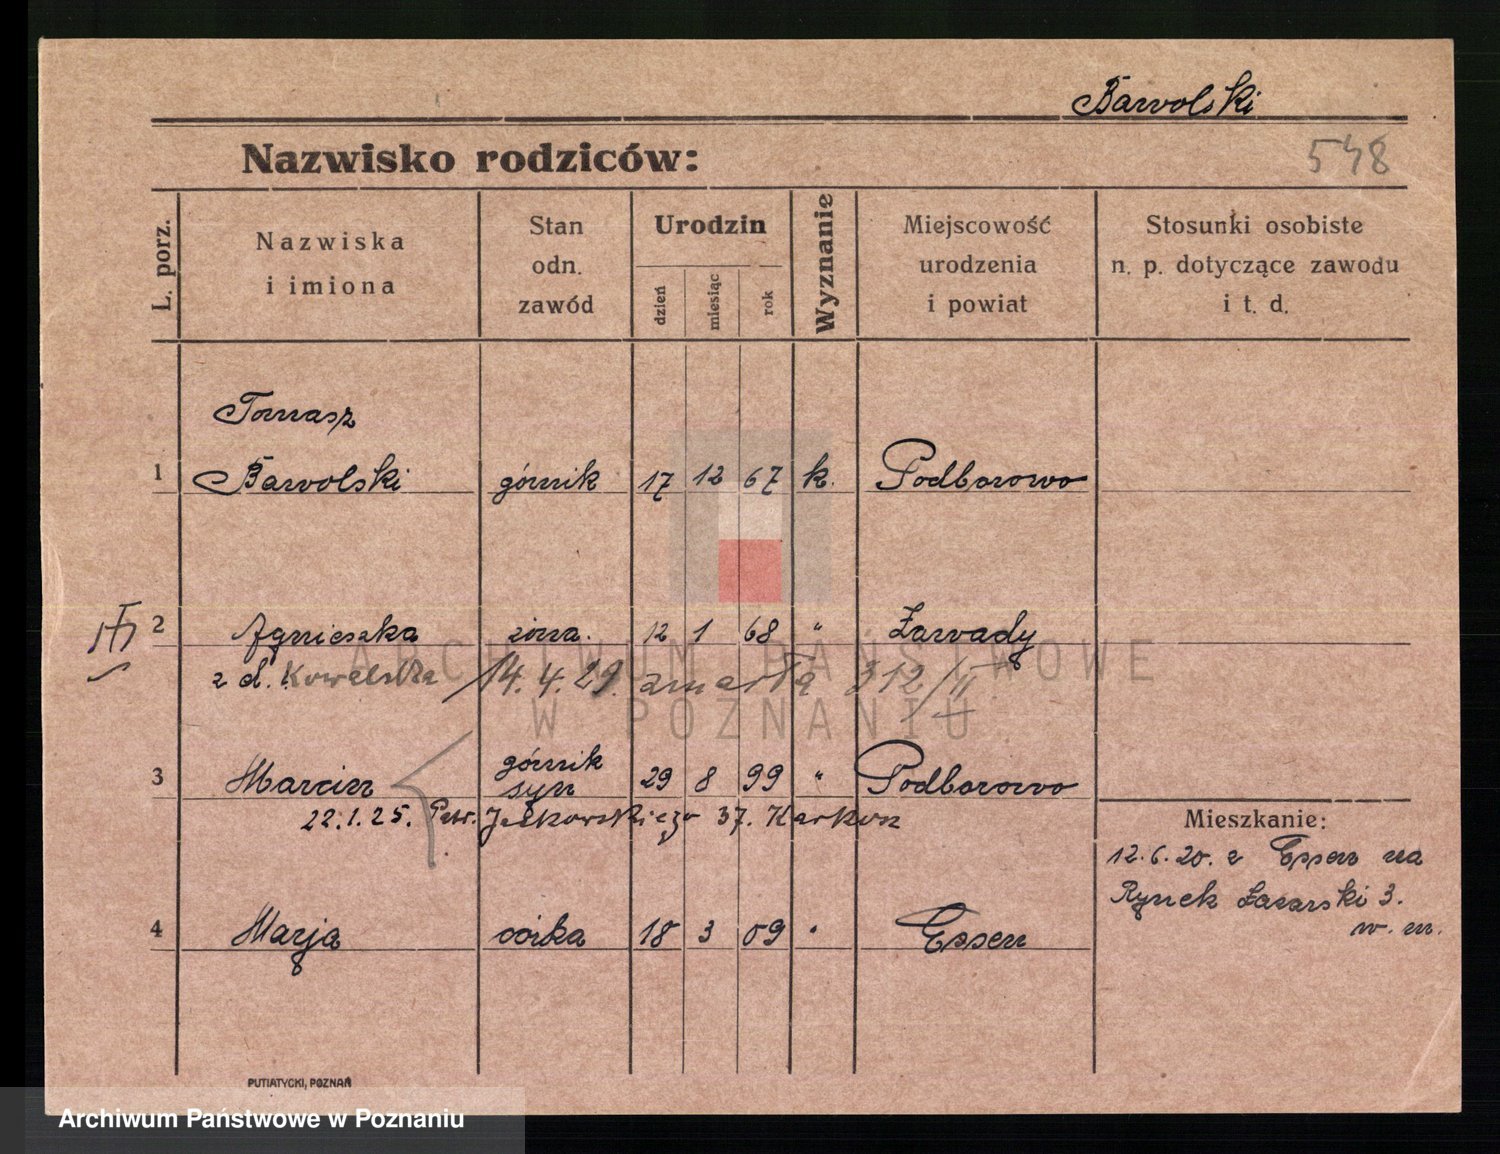 Bawolski
Nazwisko rodziców:
548
L. porz.
Nazwiska
i imiona
Stan
odn.
zawód
Urodzin
dzień
miesiąc
rok
Wyznanie
Miejscowość
urodzenia
i powiat
Stosunki osobiste
n. p. dotyczące zawodu
i t. d.
Tomasz
1 Bawolski górnik 17 12 67 k. Podborowo
2 Agnieszka żona. 12 1 68 " Zawady
z d. Kowalska 14.4.29. zmarła 312/II
górnik
3 Marcin syn 29 8 99 " Podborowo
22.1.25. Jackowskiego 37.
Mieszkanie:
12.6.20. z Essen na
Rynek Łazarski 3.
w. m.
4 Marja córka 18 3 09 " Essen
PUTIATYCKI, POZNAŃ
ARCHIWUM PAŃSTWOWE
W POZNANIU
Archiwum Państwowe w Poznaniu